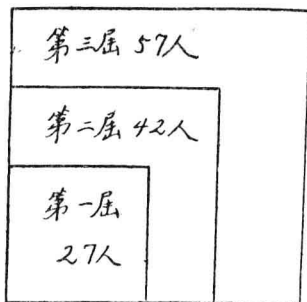 第三屆 57人
第二屆 42人
第一屆
27人